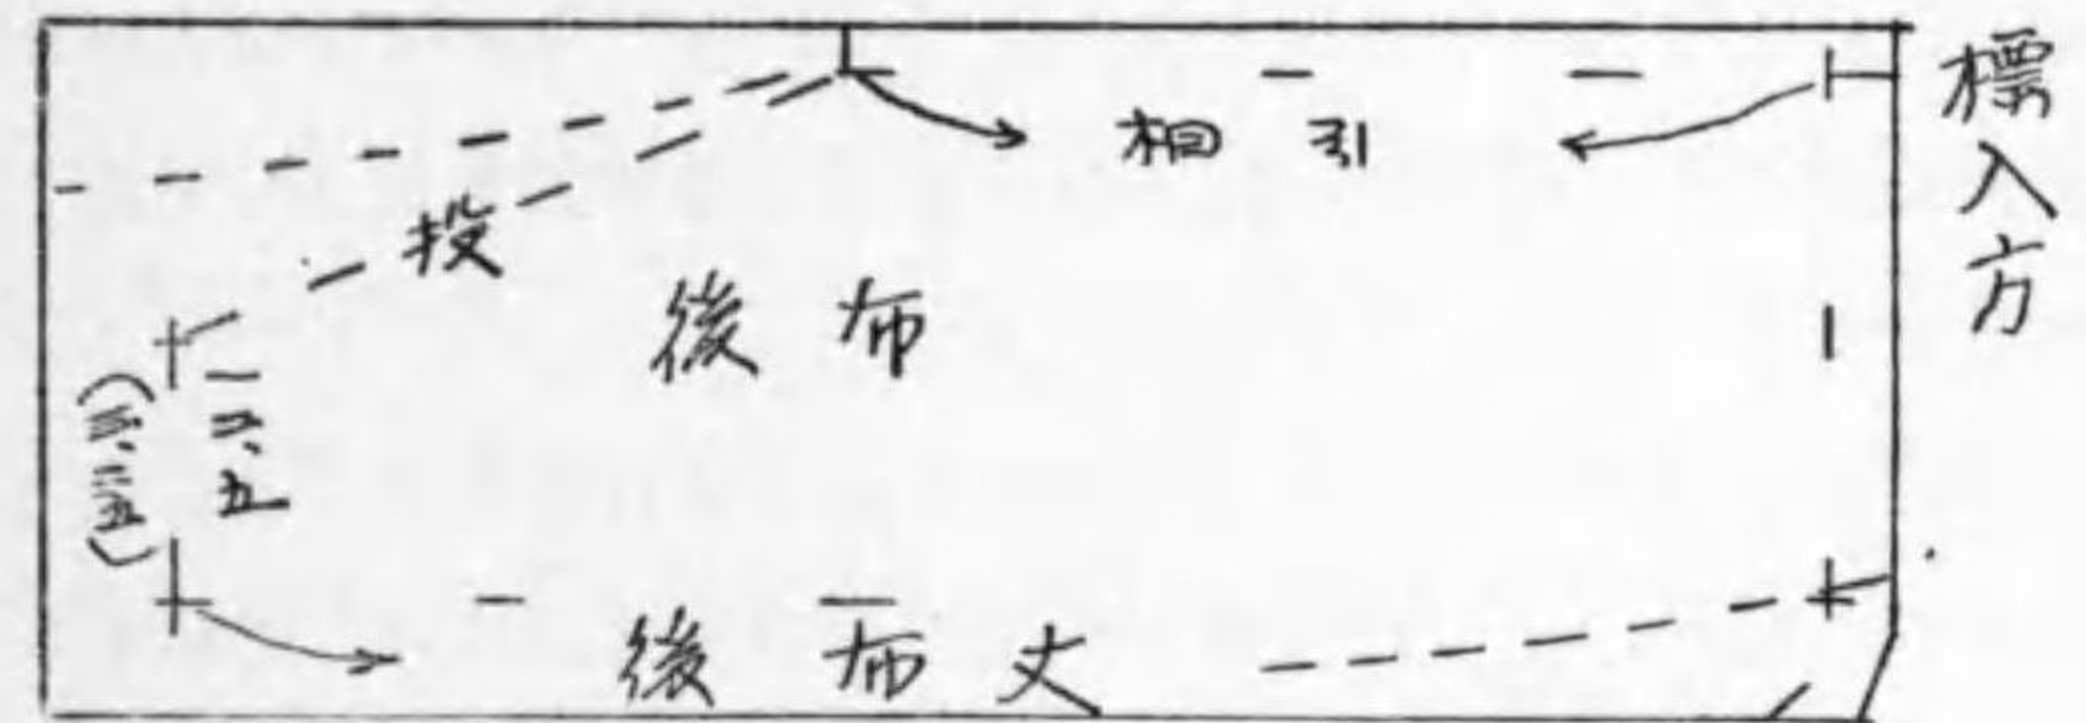 標入方
相引
投
後布
一二、五
後布丈